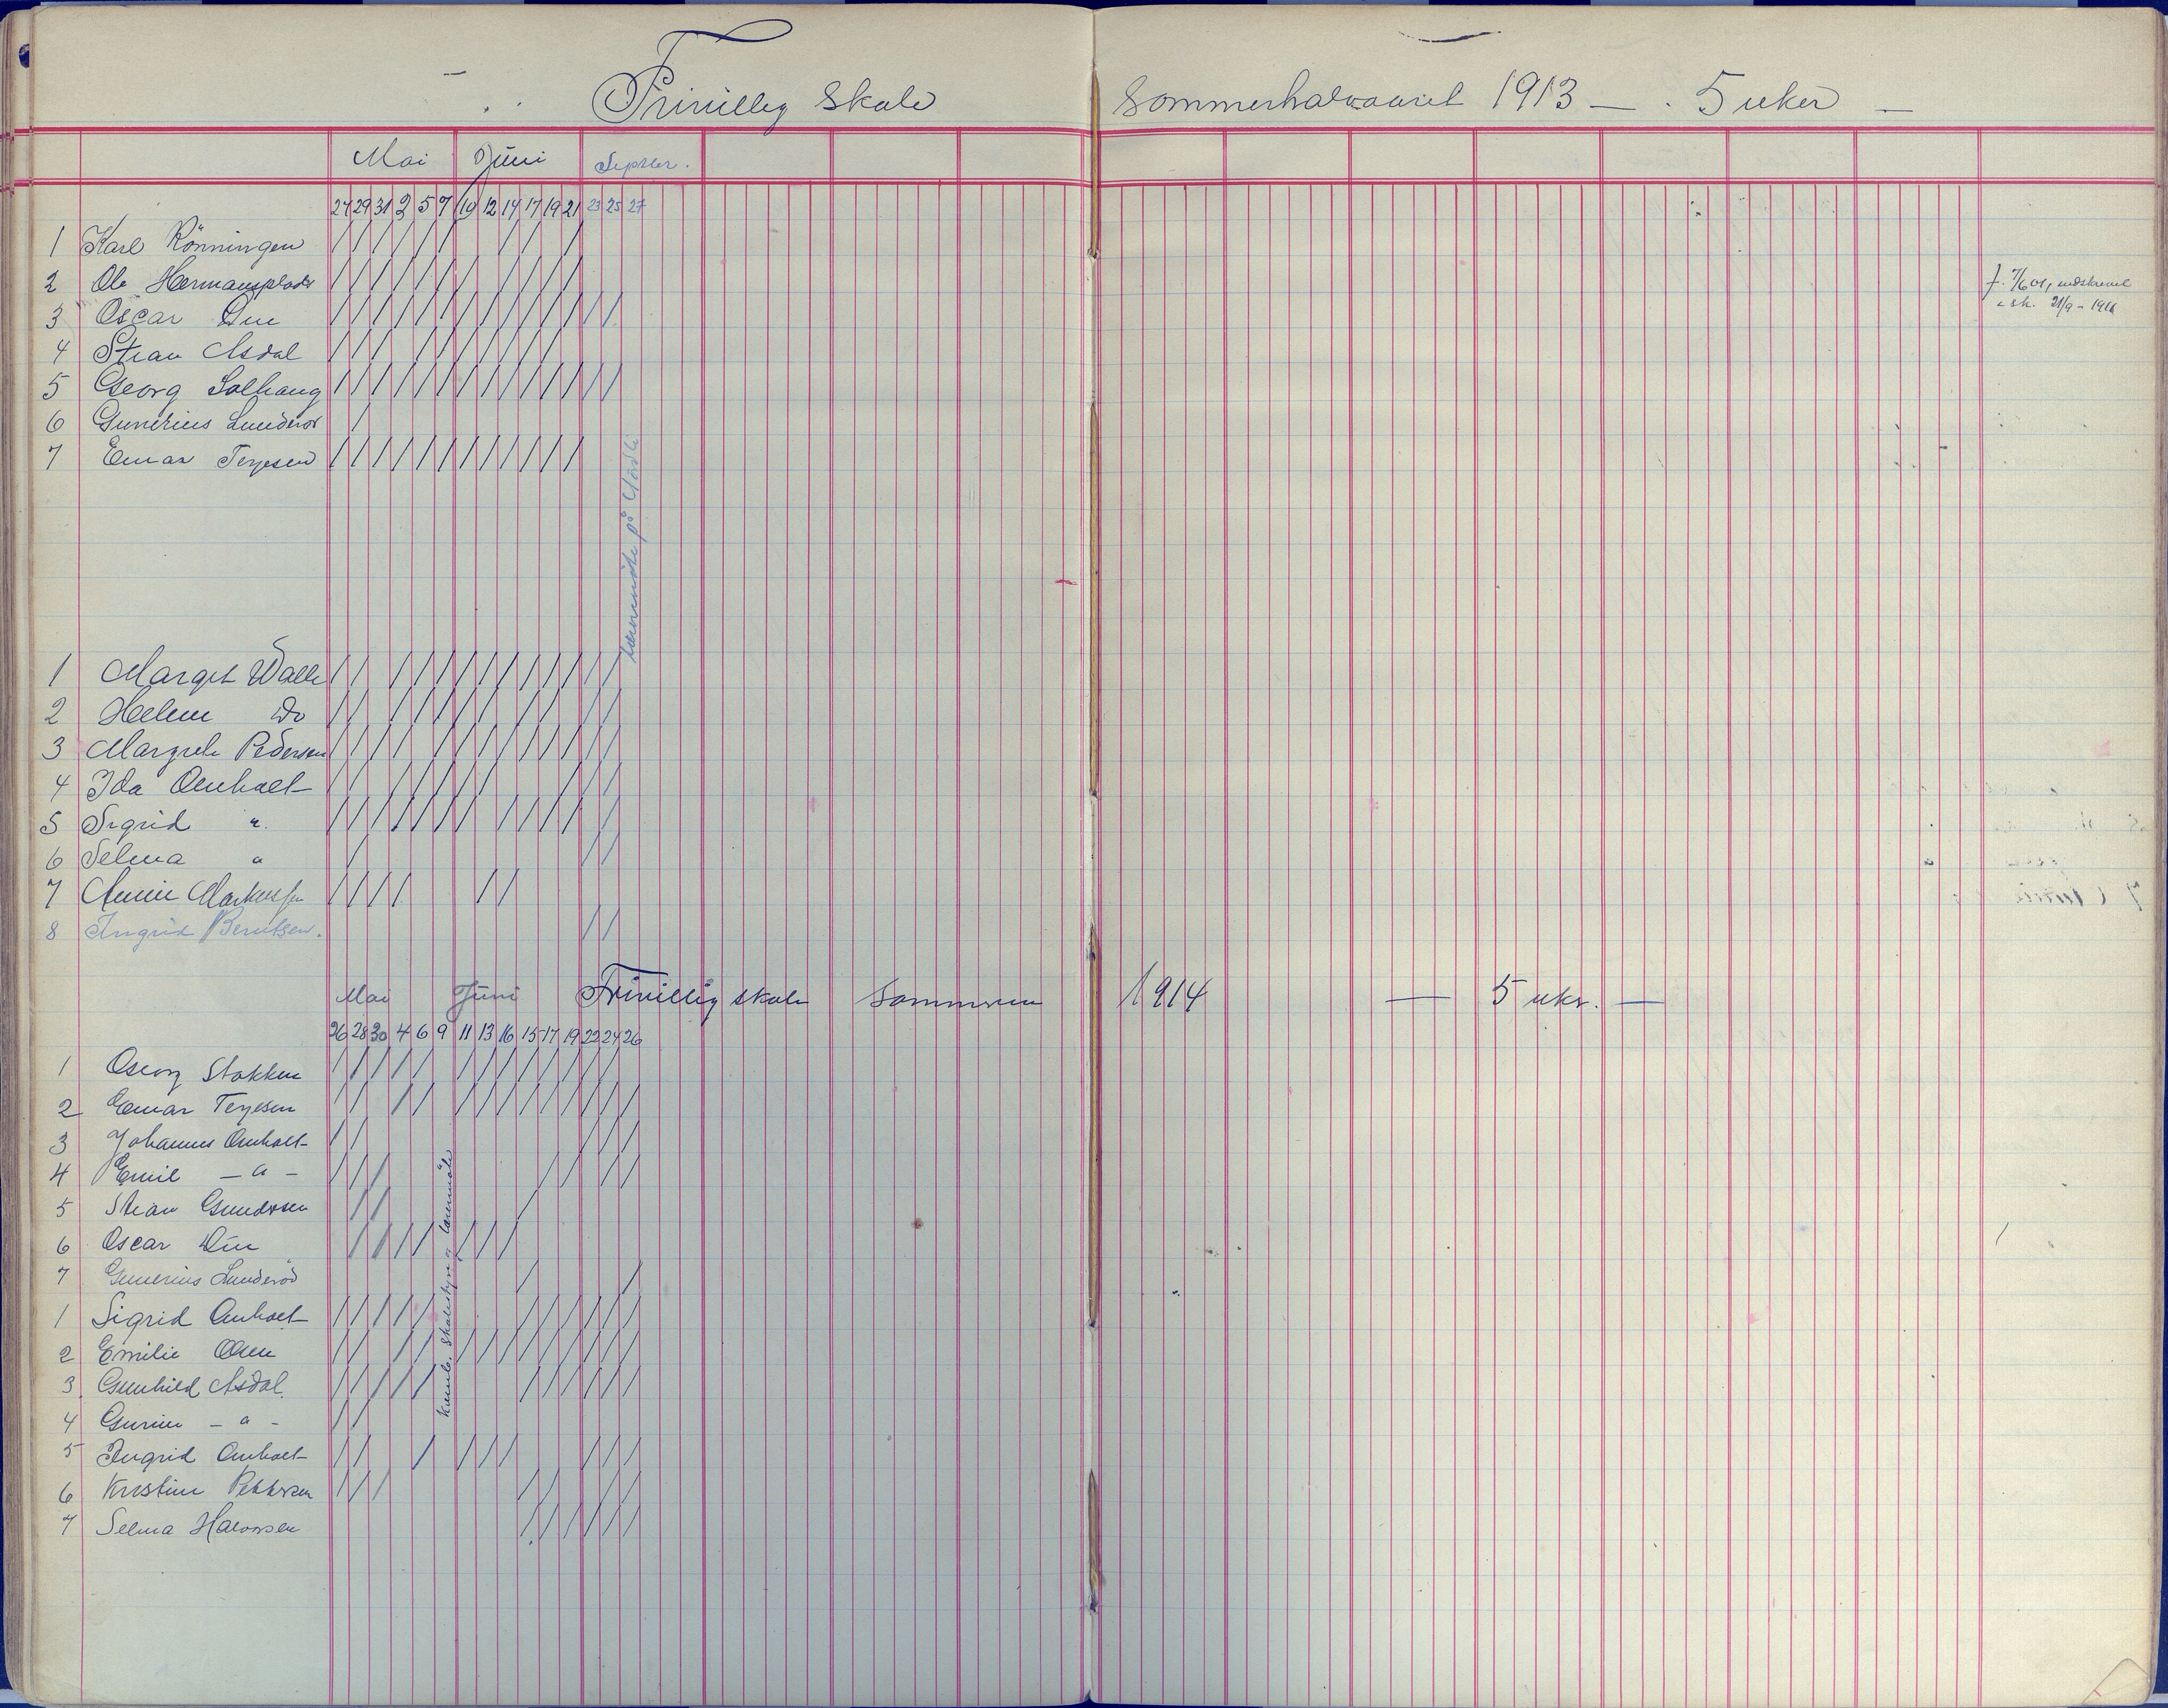 Frivillig Skole Sommerhalvaaret 1913 — 5 uker —
Mai Juni Septbr.
27 29 31 2 5 7 10 12 14 17 19 21 23 25 27
1 Karl Rönningen
2 Ole Hermansplads
3 Oscar Due
4 Stian Asdal
5 Georg Solhaug
6 Gunerius Lunderød
7 Einar Terjesen
1 Margit Walle
2 Helene Do
3 Margrete Pedersen
4 Ida Omholt
5 Sigrid "
6 Selma "
7 Annie Markussen
8 Ingrid Berntsen.
lærermöte på
Mai Juni Frivillig skole Sommeren 1914 — 5 uker. —
26 28 30 4 6 9 11 13 16 15 17 19 22 24 26
1 Georg Stokken
2 Einar Terjesen
3 Johannes Omholt
4 Emil — " —
5 Stian Gundersen
6 Oscar Due
7 Gunerius Lunderød
1 Sigrid Omholt
2 Emilie Olsen
3 Gunhild Asdal.
4 Gurine — " —
5 Ingrid Omholt
6 Kristine Pettersen
7 Selma Halvorsen